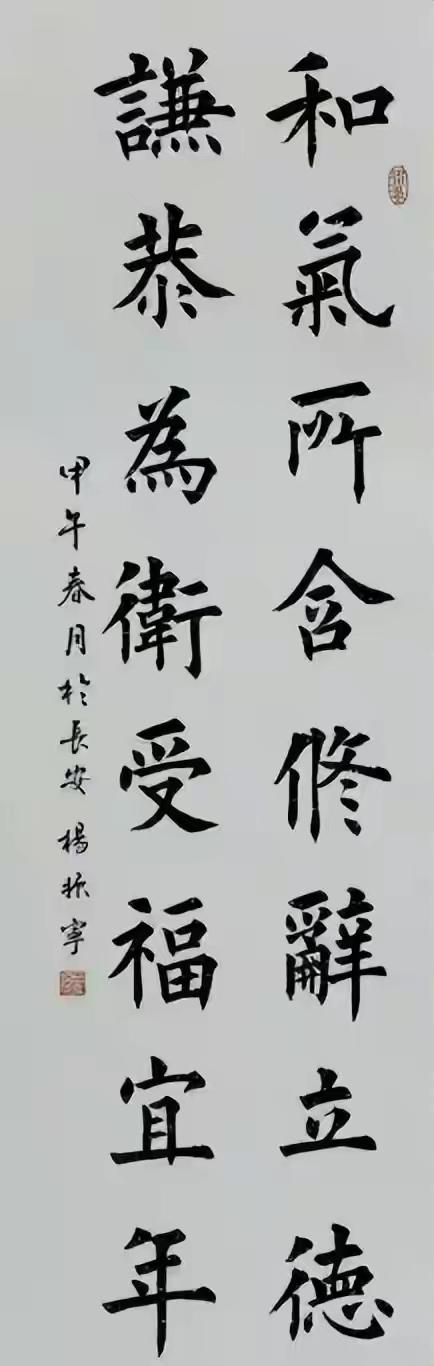 和氣所含脩辭立德
謙恭為衛受福宜年
甲午春月於長安 楊振寧